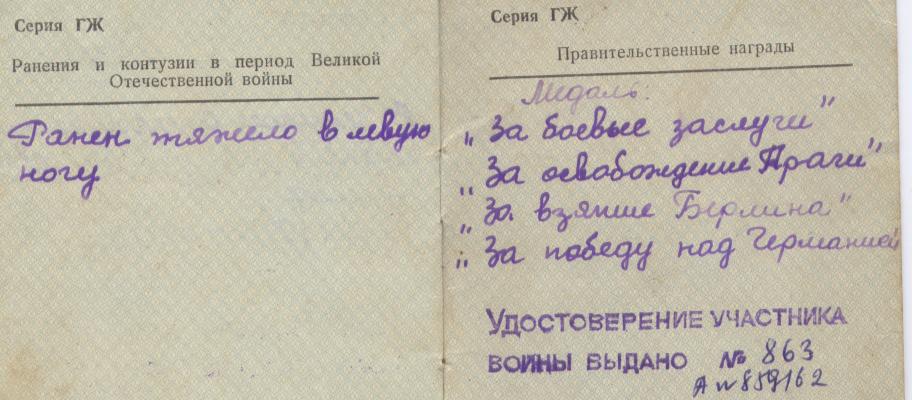 Серия ГЖ
Ранения и контузии в период Великой
Отечественной войны
Ранен тяжело в левую
ногу
Серия ГЖ
Правительственные награды
Медаль:
"За боевые заслуги"
"За освобождение Праги"
"За взятие Берлина"
"За победу над Германией
УДОСТОВЕРЕНИЕ УЧАСТНИКА
ВОЙНЫ ВЫДАНО № 863
А № 859162